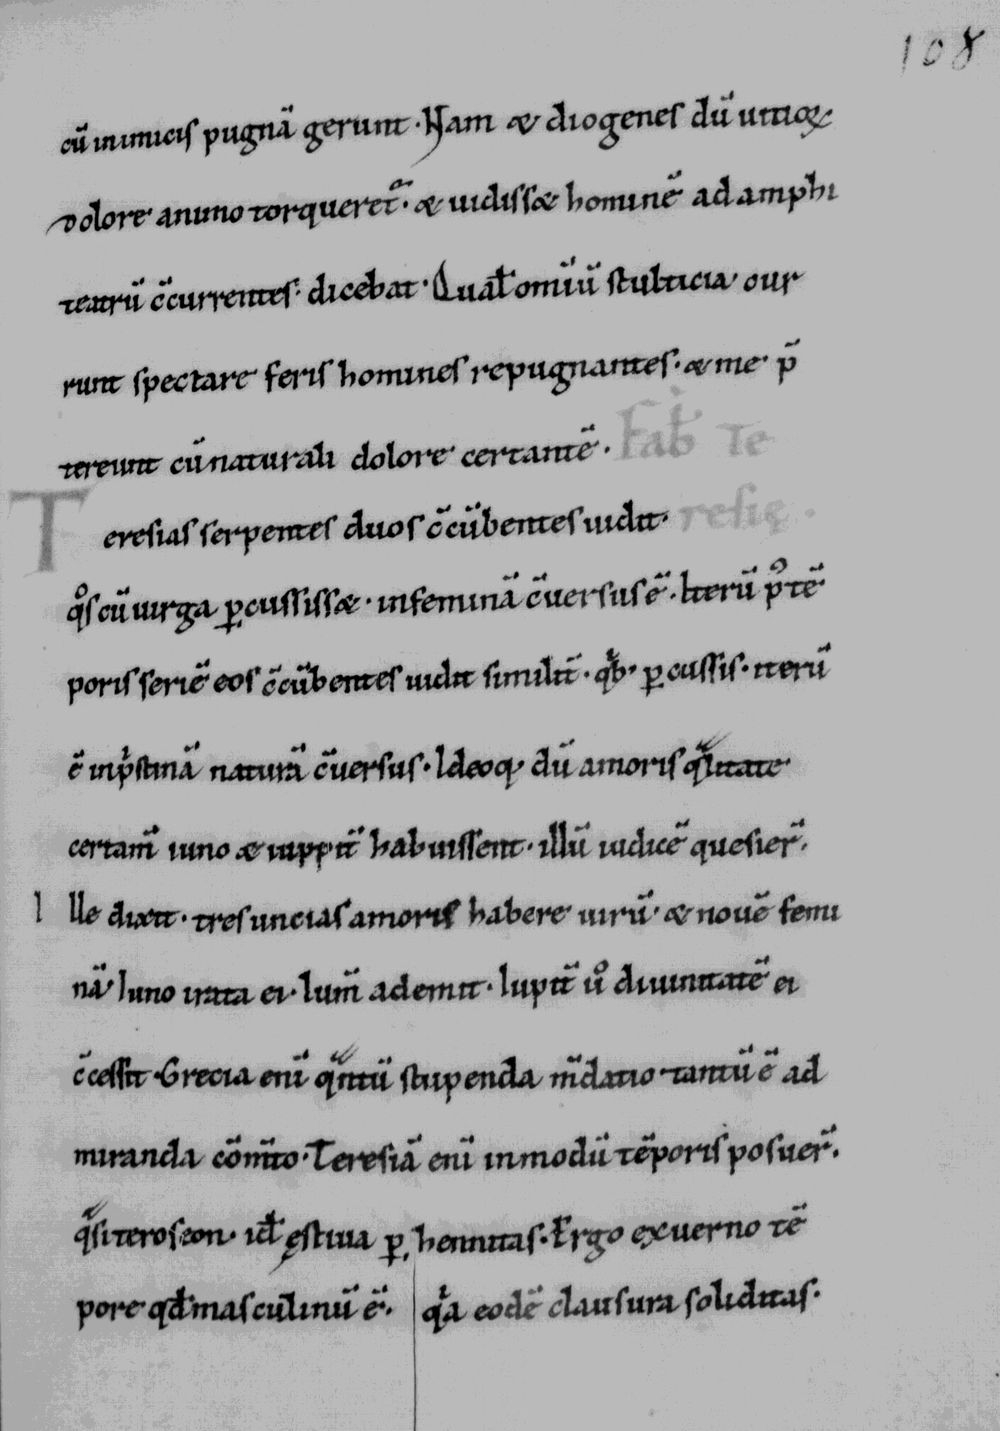 108
cū inimicis pugnā gerunt · Nam & diogenes dū uitio &
dolore animo torqueret᷑ · & uidiss& hominē ad amphi
teatrū c̄currentes · dicebat · Qualꝉ omīū stulticia
runt spectare feris homines repugnantes · & me p̄
tereunt cū naturali dolore certantē ·
Fab̄ Te
T eresias serpentes duos c̄cūbentes uidit ·
resię ·
qͦs cū uirga ꝑcussiss& · in feminā c̄uersus ē · Iterū pͦ tē
poris seriē eos c̄cūbentes uidit similit̄ · qͥb · ꝑcussis · iterū
ē in pͥstinā naturā c̄uersus · Ideoq; dū amoris qͣlitate
certam̄ iuno & iuppit̄ habuissent · illū iudicē quesier̄ ·
Ille dixit · tres uncias amoris habere uirū · & nouē femi
nā · Iuno irata ei · lum̄ ademit · Iupit̄ uͦ diuinitatē ei
c̄cessit · Grecia enī qͣntū stupenda m̄datio · tantū ē ad
miranda cōm̄to · Teresiā enī in modū tēporis posuer̄ ·
qͣsi teroseon · id ꝉ ęstiua ꝑhennitas · Ergo ex uerno tē
pore qd̄ masculinū ē · qͥa eodē clausura soliditas ·